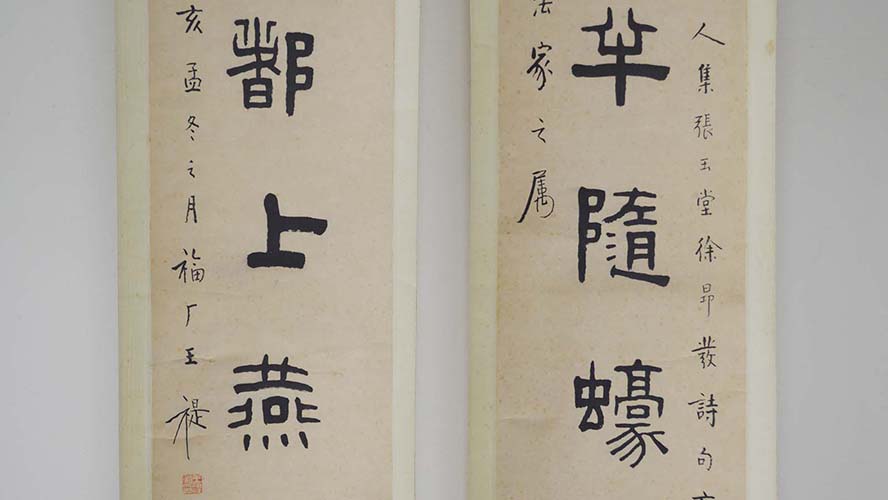 人集張玉堂徐昂發詩句
半隨蠔
法家之属
都上燕
亥孟冬之月福厂王禔